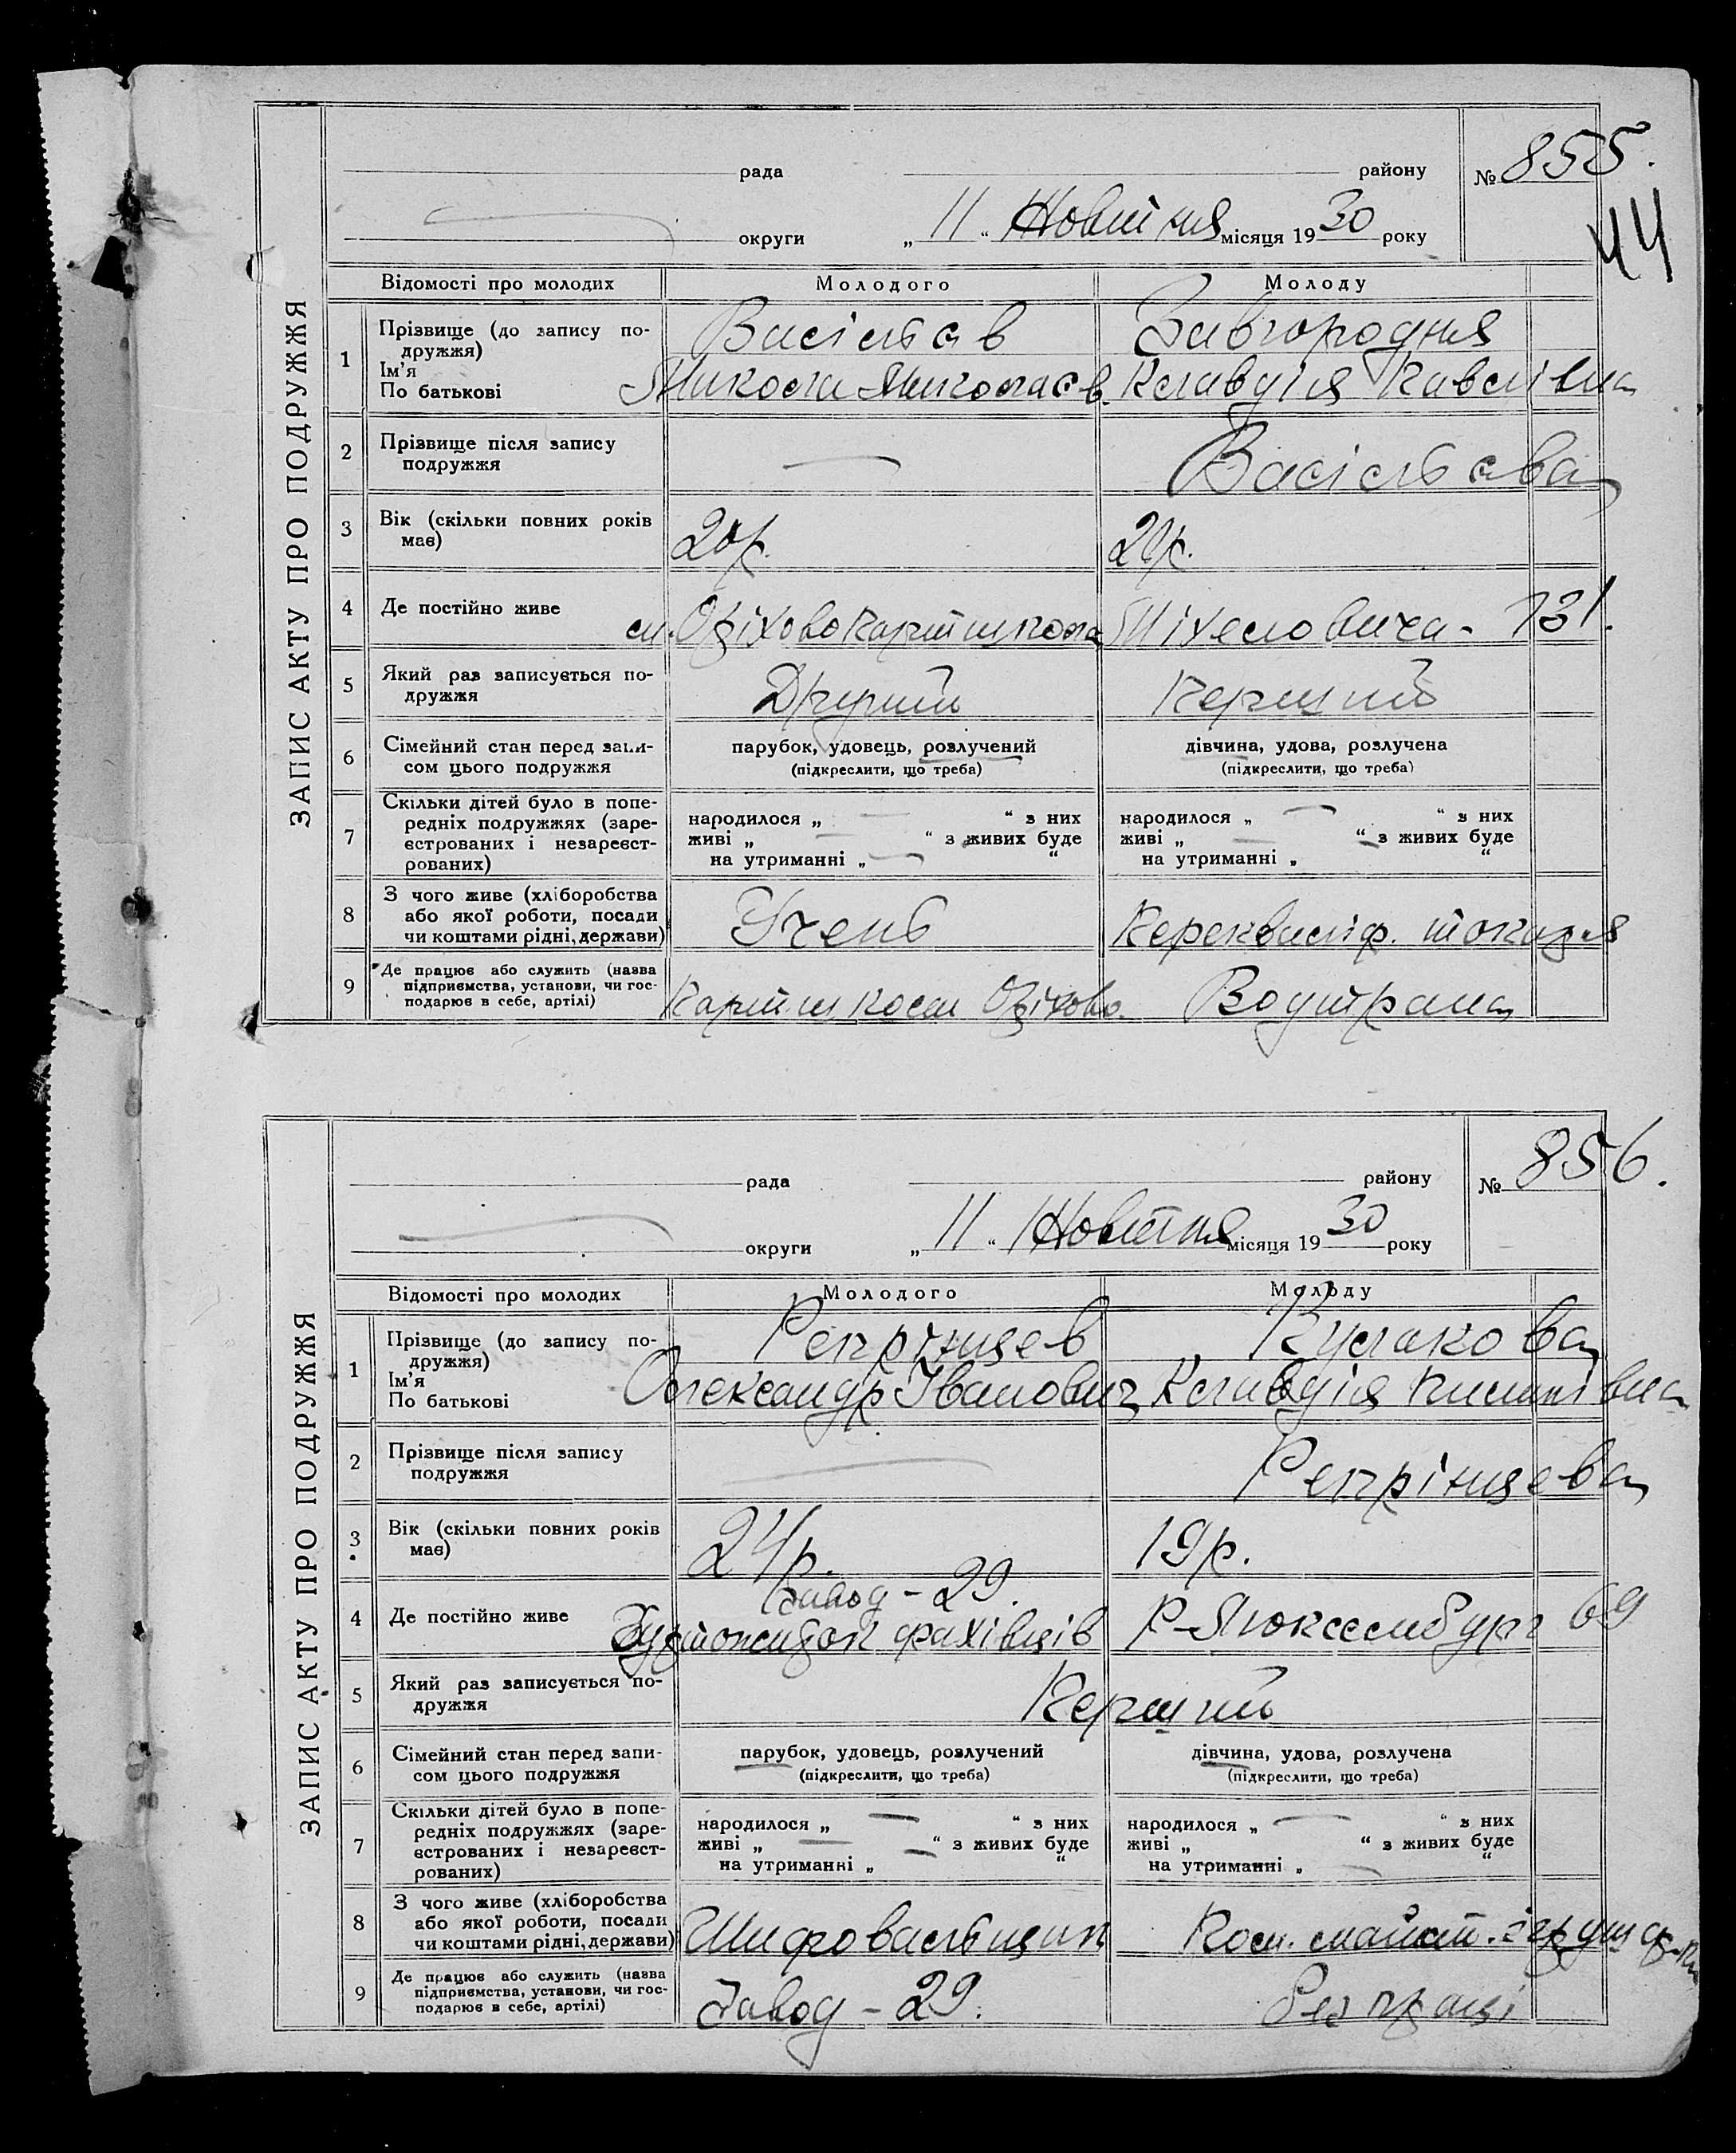 ЗАПИС АКТУ ПРО ПОДРУЖЖЯ
рада району № 855.
44
округи „ 11 “ Жовтня місяця 1930 року
Відомості про молодих Молодого Молоду
1 Прізвище (до запису подружжя) Васільєв Завгородня
Ім'я
По батькові Микола Миколаєв. Клавдія Павлівна
2 Прізвище після запису подружжя — Васільєва
3 Вік (скільки повних років має) 20р. 20р.
4 Де постійно живе ст. Оріхово Партшкола 131.
5 Який раз записується подружжя Другий Перший
6 Сімейний стан перед записом цього подружжя парубок, удовець, розлучений дівчина, удова, розлучена
(підкреслити, що треба) (підкреслити, що треба)
7 Скільки дітей було в попередніх подружжях (зареєстрованих і незареєстрованих)
народилося „ — “ з них народилося „ — “ з них
живі „ — “ з живих буде живі „ — “ з живих буде
на утриманні „ — “ на утриманні „ — “
8 З чого живе (хліборобства або якої роботи, посади чи коштами рідні, держави) Учень Перекваліф. токаря
9 Де працює або служить (назва підприємства, установи, чи господарює в себе, артілі) Партшкола Оріхово. Водтрана
ЗАПИС АКТУ ПРО ПОДРУЖЖЯ
рада району № 856.
округи „ 11 “ Жовтня місяця 1930 року
Відомості про молодих Молодого Молоду
1 Прізвище (до запису подружжя) Репрінцев Кулакова
Ім'я
По батькові Олександр Іванович Клавдія Пилипівна
2 Прізвище після запису подружжя — Репрінцева
3 Вік (скільки повних років має) 24р. 19р.
Завод – 29.
4 Де постійно живе Гуртожидок фахівців Р-Люксембург 69
5 Який раз записується подружжя Перший
6 Сімейний стан перед записом цього подружжя парубок, удовець, розлучений дівчина, удова, розлучена
(підкреслити, що треба) (підкреслити, що треба)
7 Скільки дітей було в попередніх подружжях (зареєстрованих і незареєстрованих)
народилося „ — “ з них народилося „ — “ з них
живі „ — “ з живих буде живі „ “ з живих буде
на утриманні „ — “ на утриманні „ — “
8 З чого живе (хліборобства або якої роботи, посади чи коштами рідні, держави) Шліфовальщик
9 Де працює або служить (назва підприємства, установи, чи господарює в себе, артілі) Завод – 29. без праці